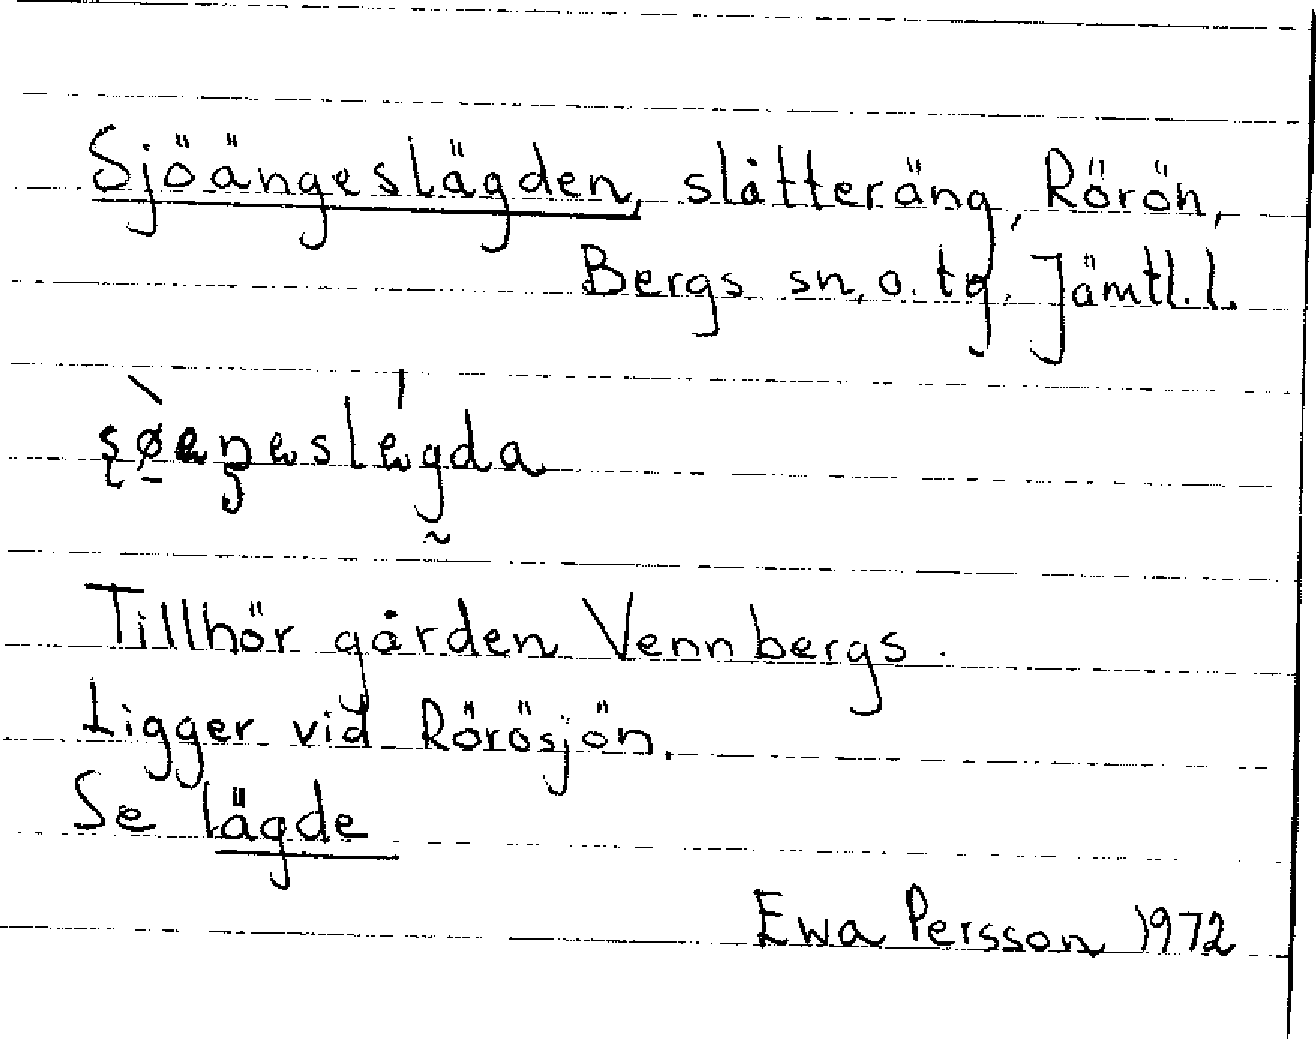 Sjöängeslägden, slåtteräng, Rörön,
Bergs sn, o. tg. Jämtl. l.
Tillhör gården Vennbergs.
Ligger vid Rörösjön.
Se lägde
Ewa Persson 1972